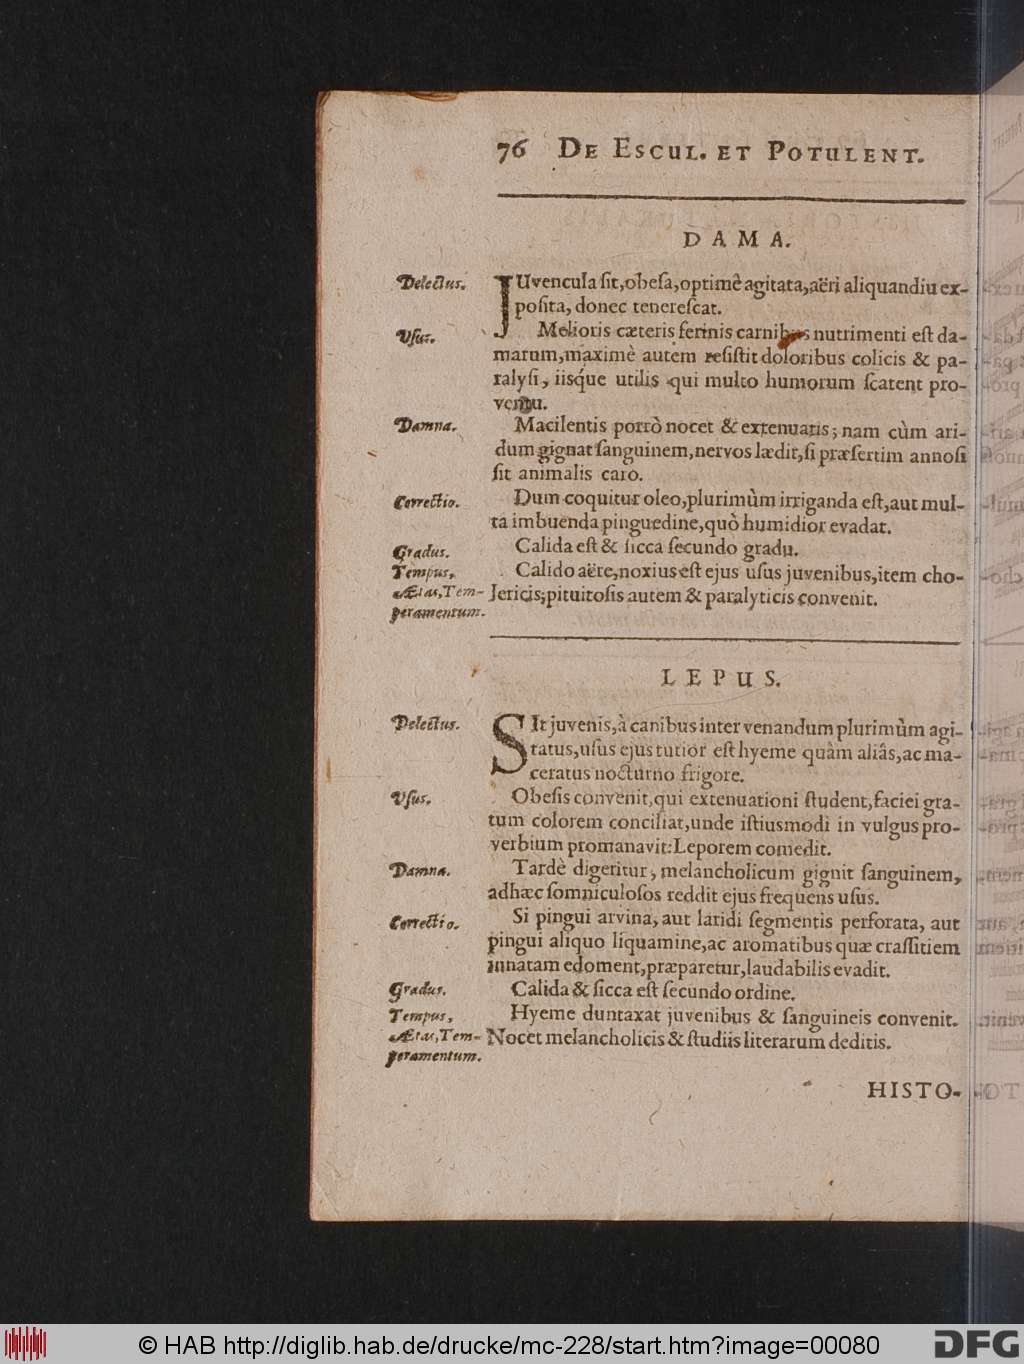 76 DE ESCUL. ET POTULENT.
DAMA.
Delectus. JUvencula ſit,obeſa,optimè agitata,aëri aliquandiu ex-
poſita, donec tenereſcat.
Uſus. Melioris cæteris ferinis carnibus nutrimenti eſt da-
marum,maximè autem reſiſtit doloribus colicis & pa-
ralyſi, iisq́ue utilis qui multo humorum ſcatent pro-
ventu.
Damna. Macilentis porrò nocet & extenuatis; nam cùm ari-
dum gignat ſanguinem,nervos lædit,ſi præſertim annoſi
ſit animalis caro.
Correctio. Dum coquitur oleo,plurimùm irriganda eſt,aut mul-
ta imbuenda pinguedine,quò humidior evadat.
Gradus. Calida eſt & ſicca ſecundo gradu.
Tempus, Calido aëre,noxius eſt ejus uſus juvenibus,item cho-
Ætas,Tem- lericis;pituitoſis autem & paralyticis convenit.
peramentum.
LEPUS.
Delectus. SIt juvenis,à canibus inter venandum plurimùm agi-
tatus,uſus ejus tutior eſt hyeme quàm aliâs,ac ma-
ceratus nocturno frigore.
Uſus. Obeſis convenit,qui extenuationi ſtudent,faciei gra-
tum colorem conciliat,unde iſtiusmodi in vulgus pro-
verbium promanavit:Leporem comedit.
Damna. Tardè digeritur, melancholicum gignit ſanguinem,
adhæc ſomniculoſos reddit ejus frequens uſus.
Correctio. Si pingui arvina, aut laridi ſegmentis perforata, aut
pingui aliquo liquamine,ac aromatibus quæ craſſitiem
innatam edoment,præparetur,laudabilis evadit.
Gradus. Calida & ſicca eſt ſecundo ordine.
Tempus, Hyeme duntaxat juvenibus & ſanguineis convenit.
Ætas,Tem- Nocet melancholicis & ſtudiis literarum deditis.
peramentum.
HISTO-
© HAB http://diglib.hab.de/drucke/mc-228/start.htm?image=00080
DFG